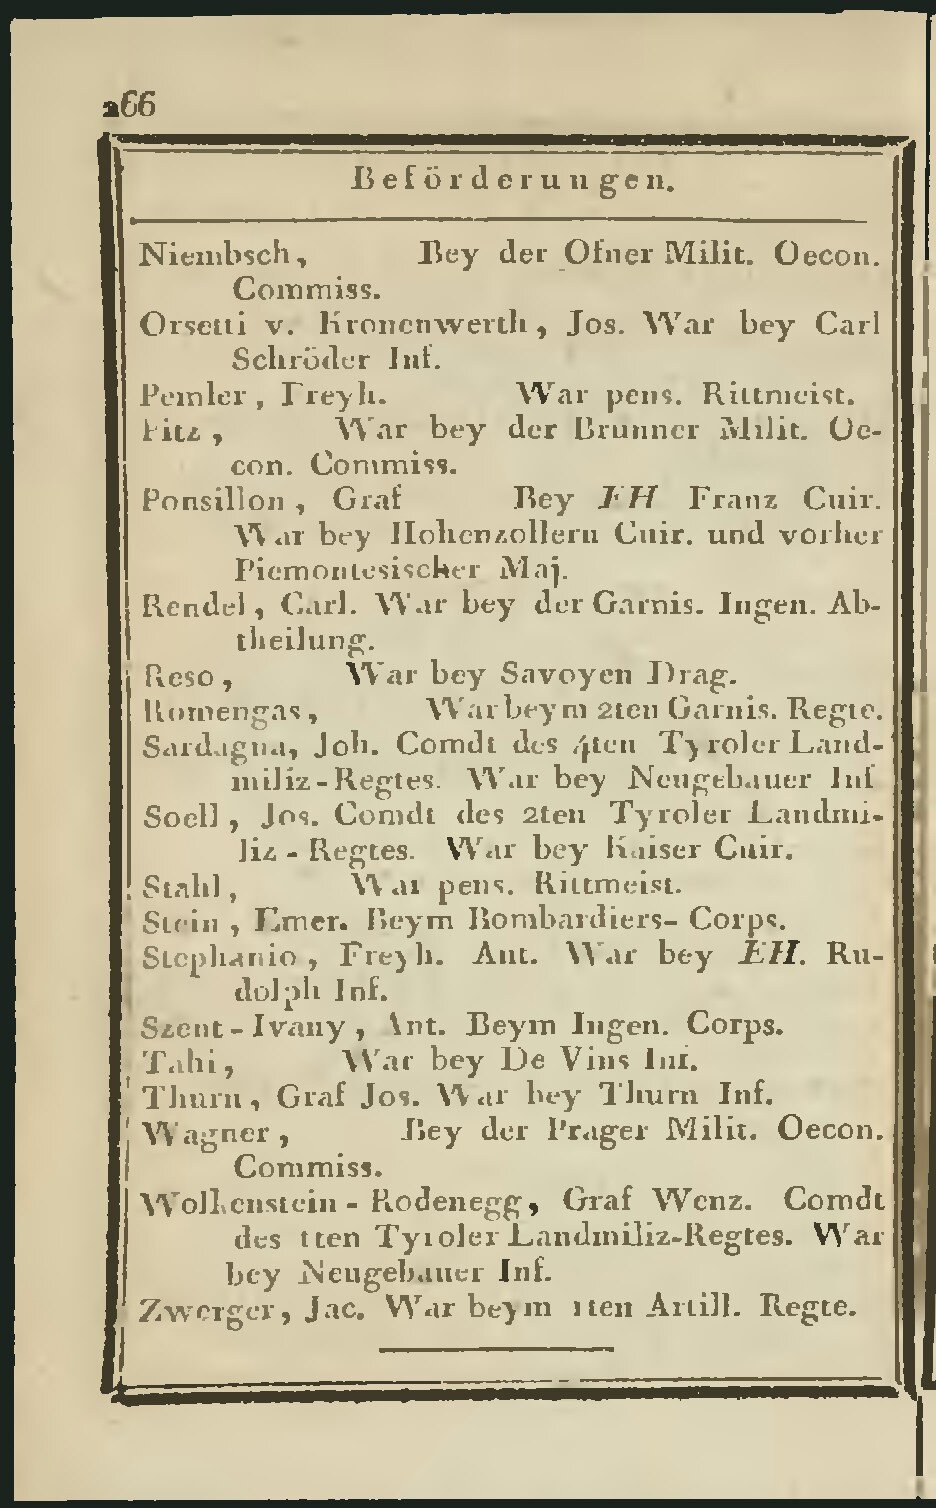 266
Beförderungen.
Niembsch, Bey der Ofner Milit. Oecon.
Commiss.
Orsetti v. Kronenwerth, Jos. War bey Carl
Schröder Inf.
Pemler, Freyh. War pens. Rittmeist.
Pitz, War bey der Brunner Milit. Oe-
con. Commiss.
Ponsillon, Graf Bey EH Franz Cuir.
War bey Hohenzollern Cuir. und vorher
Piemontesischer Maj.
Rendel, Carl. War bey der Garnis. Ingen. Ab-
theilung.
Reso, War bey Savoyen Drag.
Romengas, War beym 2ten Garnis. Regte.
Sardagna, Joh. Comdt des 4ten Tyroler Land-
miliz-Regtes. War bey Neugebauer Inf
Soell, Jos. Comdt des 2ten Tyroler Landmi-
liz-Regtes. War bey Kaiser Cuir.
Stahl, War pens. Rittmeist.
Stein, Emer. Beym Bombardiers-Corps.
Stephanio, Freyh. Ant. War bey EH. Ru-
dolph Inf.
Szent-Ivany, Ant. Beym Ingen. Corps.
Tahi, War bey De Vins Inf.
Thurn, Graf Jos. War bey Thurn Inf.
Wagner, Bey der Prager Milit. Oecon.
Commiss.
Wolkenstein-Rodenegg, Graf Wenz. Comdt
des 1ten Tyroler Landmiliz-Regtes. War
bey Neugebauer Inf.
Zwerger, Jac. War beym 1ten Artill. Regte.